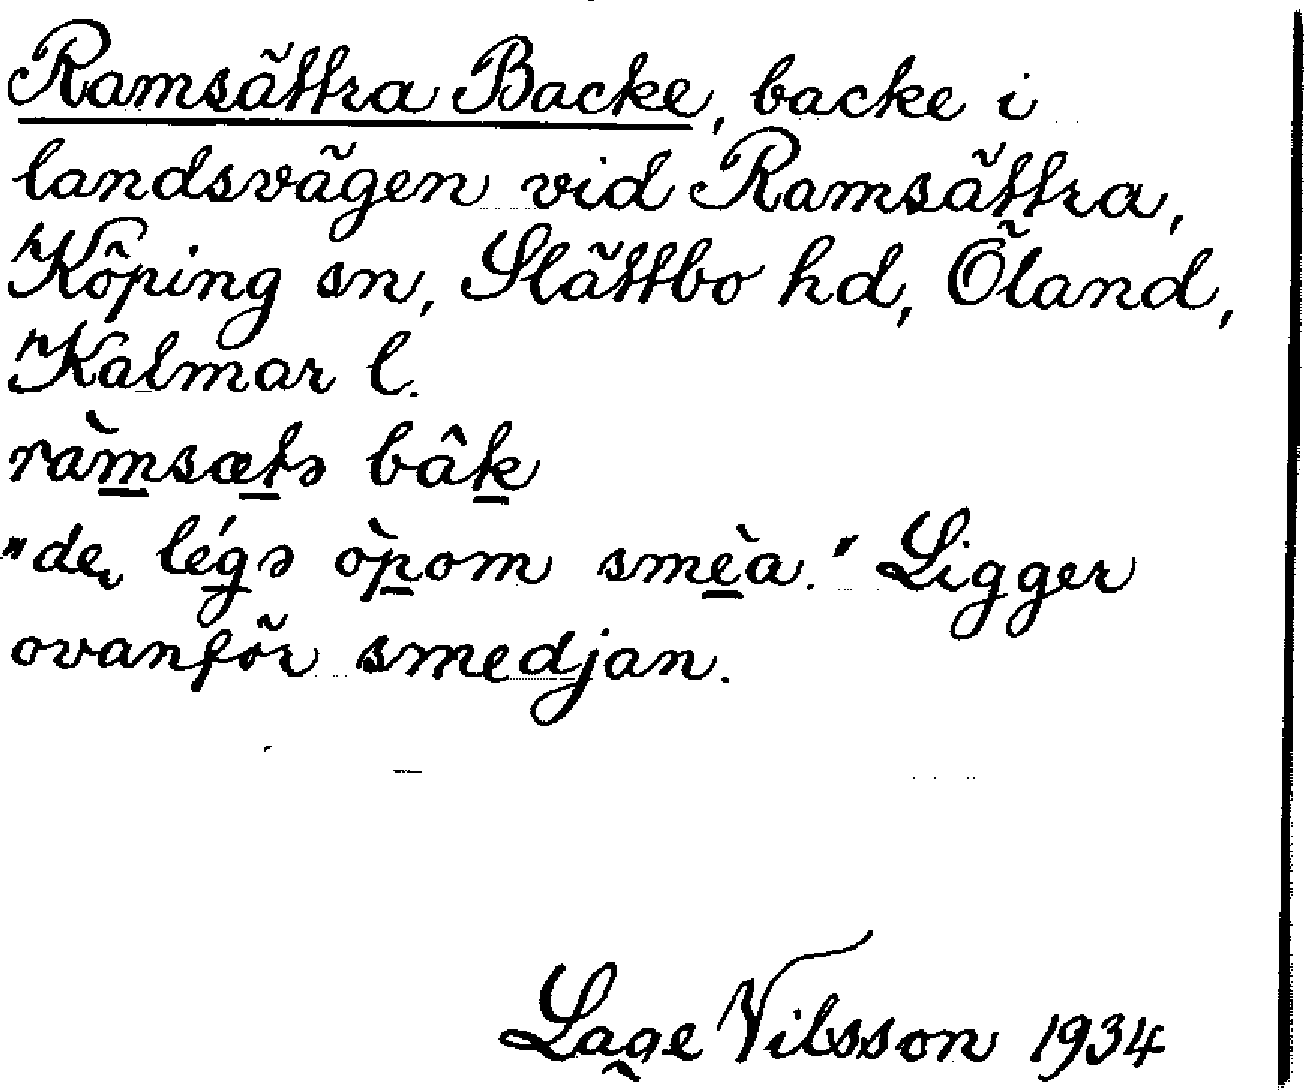 Ramsättra Backe, backe i
landsvägen vid Ramsättra,
Köping sn, Slättbo hd, Öland,
Kalmar l.
ràm̲sæt̲ə bâk̲
"de, lég̲ə òp̲om smè̲a." Ligger
ovanför smedjan.
Lage Nilsson 1934